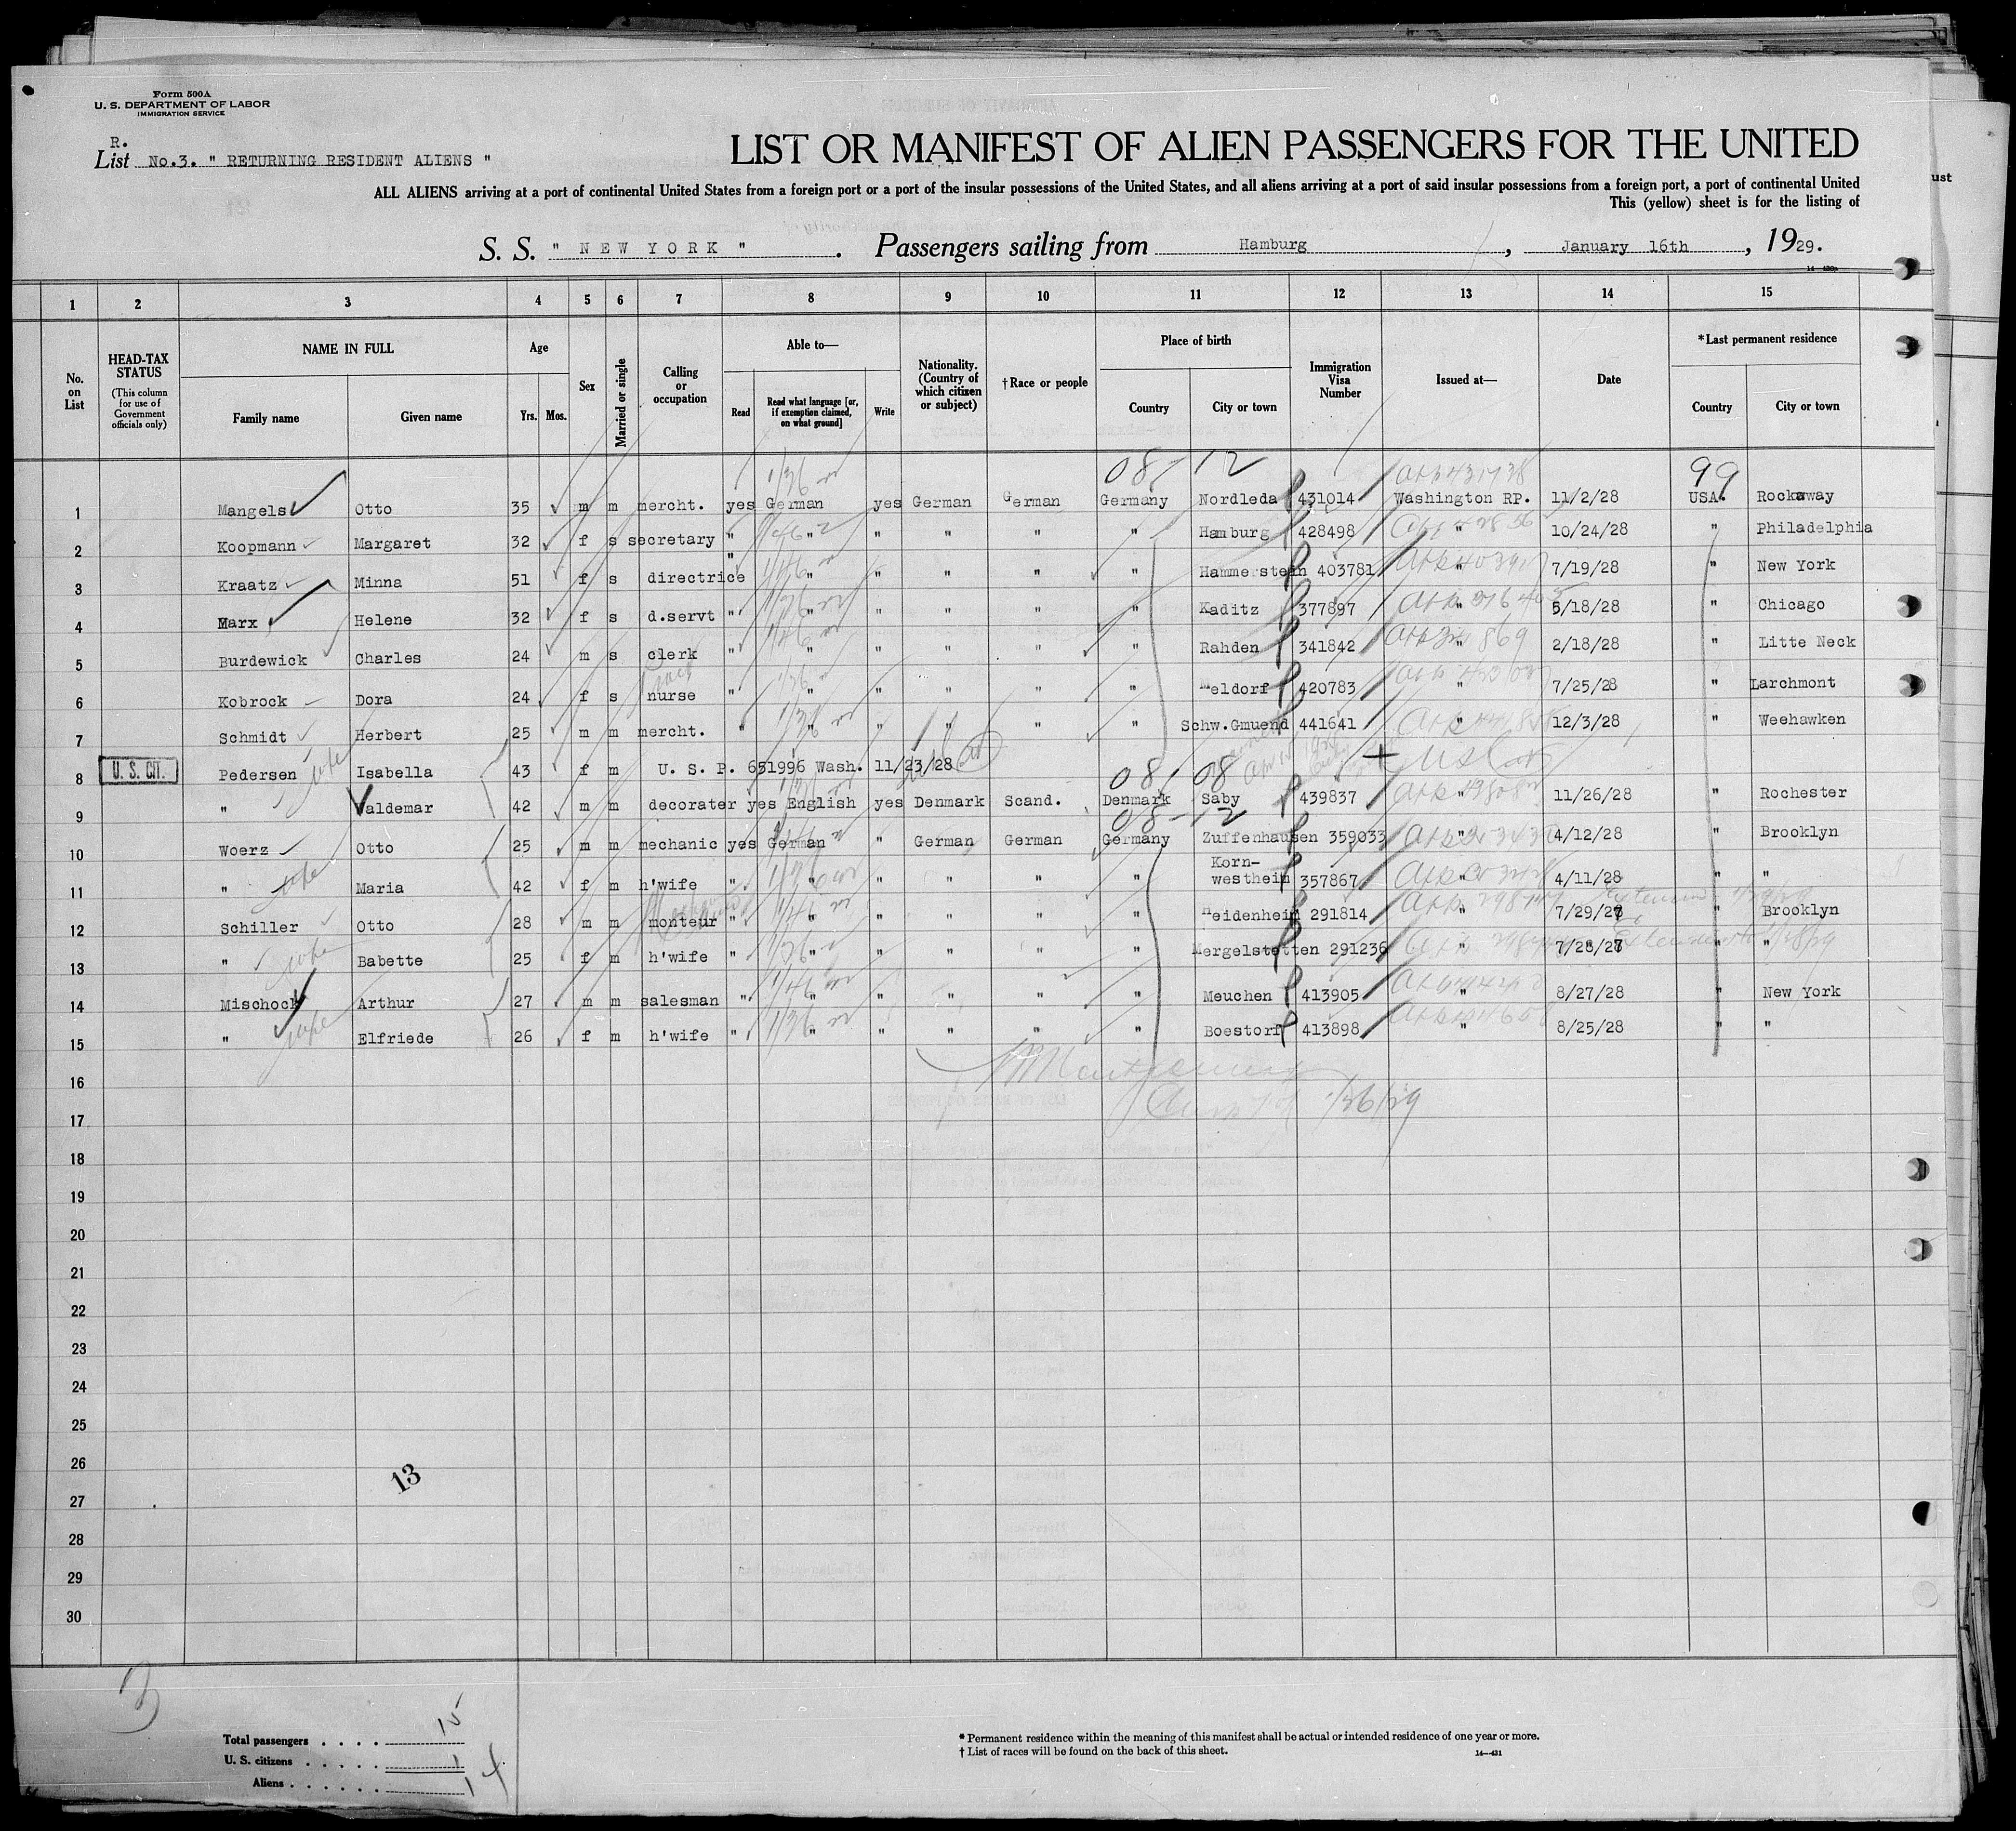 Form 500A
U. S. DEPARTMENT OF LABOR
IMMIGRATION SERVICE
R.
List No.3. " RETURNING RESIDENT ALIENS "
LIST OR MANIFEST OF ALIEN PASSENGERS FOR THE UNITED
ALL ALIENS arriving at a port of continental United States from a foreign port or a port of the insular possessions of the United States, and all aliens arriving at a port of said insular possessions from a foreign port, a port of continental United
This (yellow) sheet is for the listing of
ust
S. S. " NEW YORK " . Passengers sailing from Hamburg , January 16th , 1929.
1 2 3 4 5 6 7 8 9 10 11 12 13 14 15
No. on List
HEAD-TAX STATUS
(This column for use of Government officials only)
NAME IN FULL
Family name Given name
Age
Yrs. Mos.
Sex
Married or single
Calling or occupation
Able to—
Read
Read what language [or, if exemption claimed, on what ground]
Write
Nationality. (Country of which citizen or subject)
† Race or people
Place of birth
Country City or town
Immigration Visa Number
Issued at—
Date
* Last permanent residence
Country City or town
08 - 12 99
1 Mangels Otto 35 m m mercht. yes German yes German German Germany Nordleda 431014 Washington RP. 11/2/28 USA. Rockaway
2 Koopmann Margaret 32 f s secretary " " " " " " Hamburg 428498 " 10/24/28 " Philadelphia
3 Kraatz Minna 51 f s directrice " " " " " " Hammerstein 403781 " 7/19/28 " New York
4 Marx Helene 32 f s d.servt " " " " " " Kaditz 377897 " 5/18/28 " Chicago
5 Burdewick Charles 24 m s clerk " " " " " " Rahden 341842 " 2/18/28 " Litte Neck
6 Kobrock Dora 24 f s nurse " " " " " " Meldorf 420783 " 7/25/28 " Larchmont
7 Schmidt Herbert 25 m m mercht. " " " " " " Schw.Gmuend 441641 " 12/3/28 " Weehawken
8 U. S. CIT. Pedersen Isabella 43 f m U. S. P. 651996 Wash. 11/23/28
08 - 08
9 " Valdemar 42 m m decorater yes English yes Denmark Scand. Denmark Saby 439837 " 11/26/28 " Rochester
08 - 12
10 Woerz Otto 25 m m mechanic yes German " German German Germany Zuffenhausen 359033 " 4/12/28 " Brooklyn
11 " Maria 42 f m h'wife " " " " " " Korn-westheim 357867 " 4/11/28 " "
12 Schiller Otto 28 m m monteur " " " " " " Heidenheim 291814 " 7/29/27 " Brooklyn
13 " Babette 25 f m h'wife " " " " " " Mergelstetten 291236 " 7/28/27 " "
14 Mischock Arthur 27 m m salesman " " " " " " Meuchen 413905 " 8/27/28 " New York
15 " Elfriede 26 f m h'wife " " " " " " Boestorf 413898 " 8/25/28 " "
16
1/26/29
17
18
19
20
21
22
23
24
25
26
13
27
28
29
30
3
Total passengers . . . . 15
U. S. citizens . . . . . 1
Aliens . . . . . . 14
* Permanent residence within the meaning of this manifest shall be actual or intended residence of one year or more.
† List of races will be found on the back of this sheet.
14—431